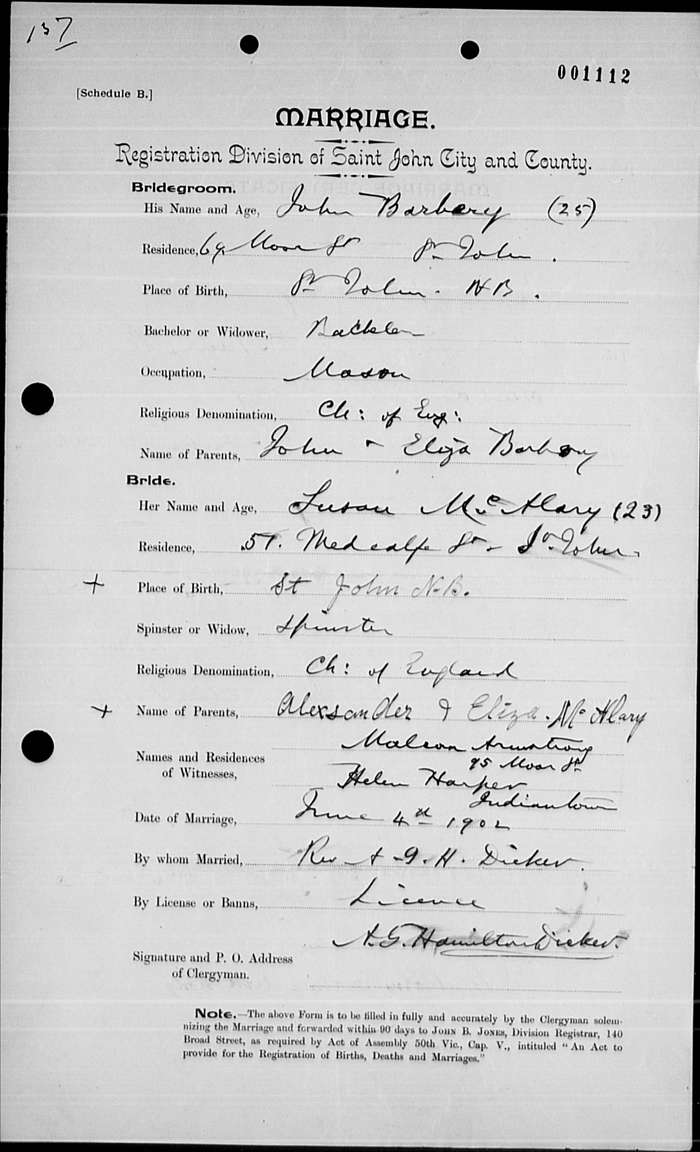 157
001112
[Schedule B.]
MARRIAGE.
Registration Division of Saint John City and County.
Bridegroom.
His Name and Age, John Barbery (25)
Residence, 69 Moor St St John.
Place of Birth, St John. N B.
Bachelor or Widower, Bachelor
Occupation, Mason
Religious Denomination, Ch: of Eng:
Name of Parents, John & Eliza Barbery
Bride.
Her Name and Age, Susan McAlary (23)
Residence, 51. Medcalfe St. St John.
+ Place of Birth, St John N.B.
Spinster or Widow, Spinster
Religious Denomination, Ch: of England
+ Name of Parents, Alexsander & Eliza. Mc Alary
Armstrong
Names and Residences
95 Moor St
of Witnesses,
Helen Harper
Indiantown
Date of Marriage, June 4th 1902
By whom Married, Rev A. G. H. Dicker.
By License or Banns, Licence
A. G. Hamilton Dicker.
Signature and P. O. Address
of Clergyman.
Note.—The above Form is to be filled in fully and accurately by the Clergyman solem-
nizing the Marriage and forwarded within 90 days to JOHN B. JONES, Division Registrar, 140
Broad Street, as required by Act of Assembly 50th Vic., Cap. V., intituled "An Act to
provide for the Registration of Births, Deaths and Marriages."